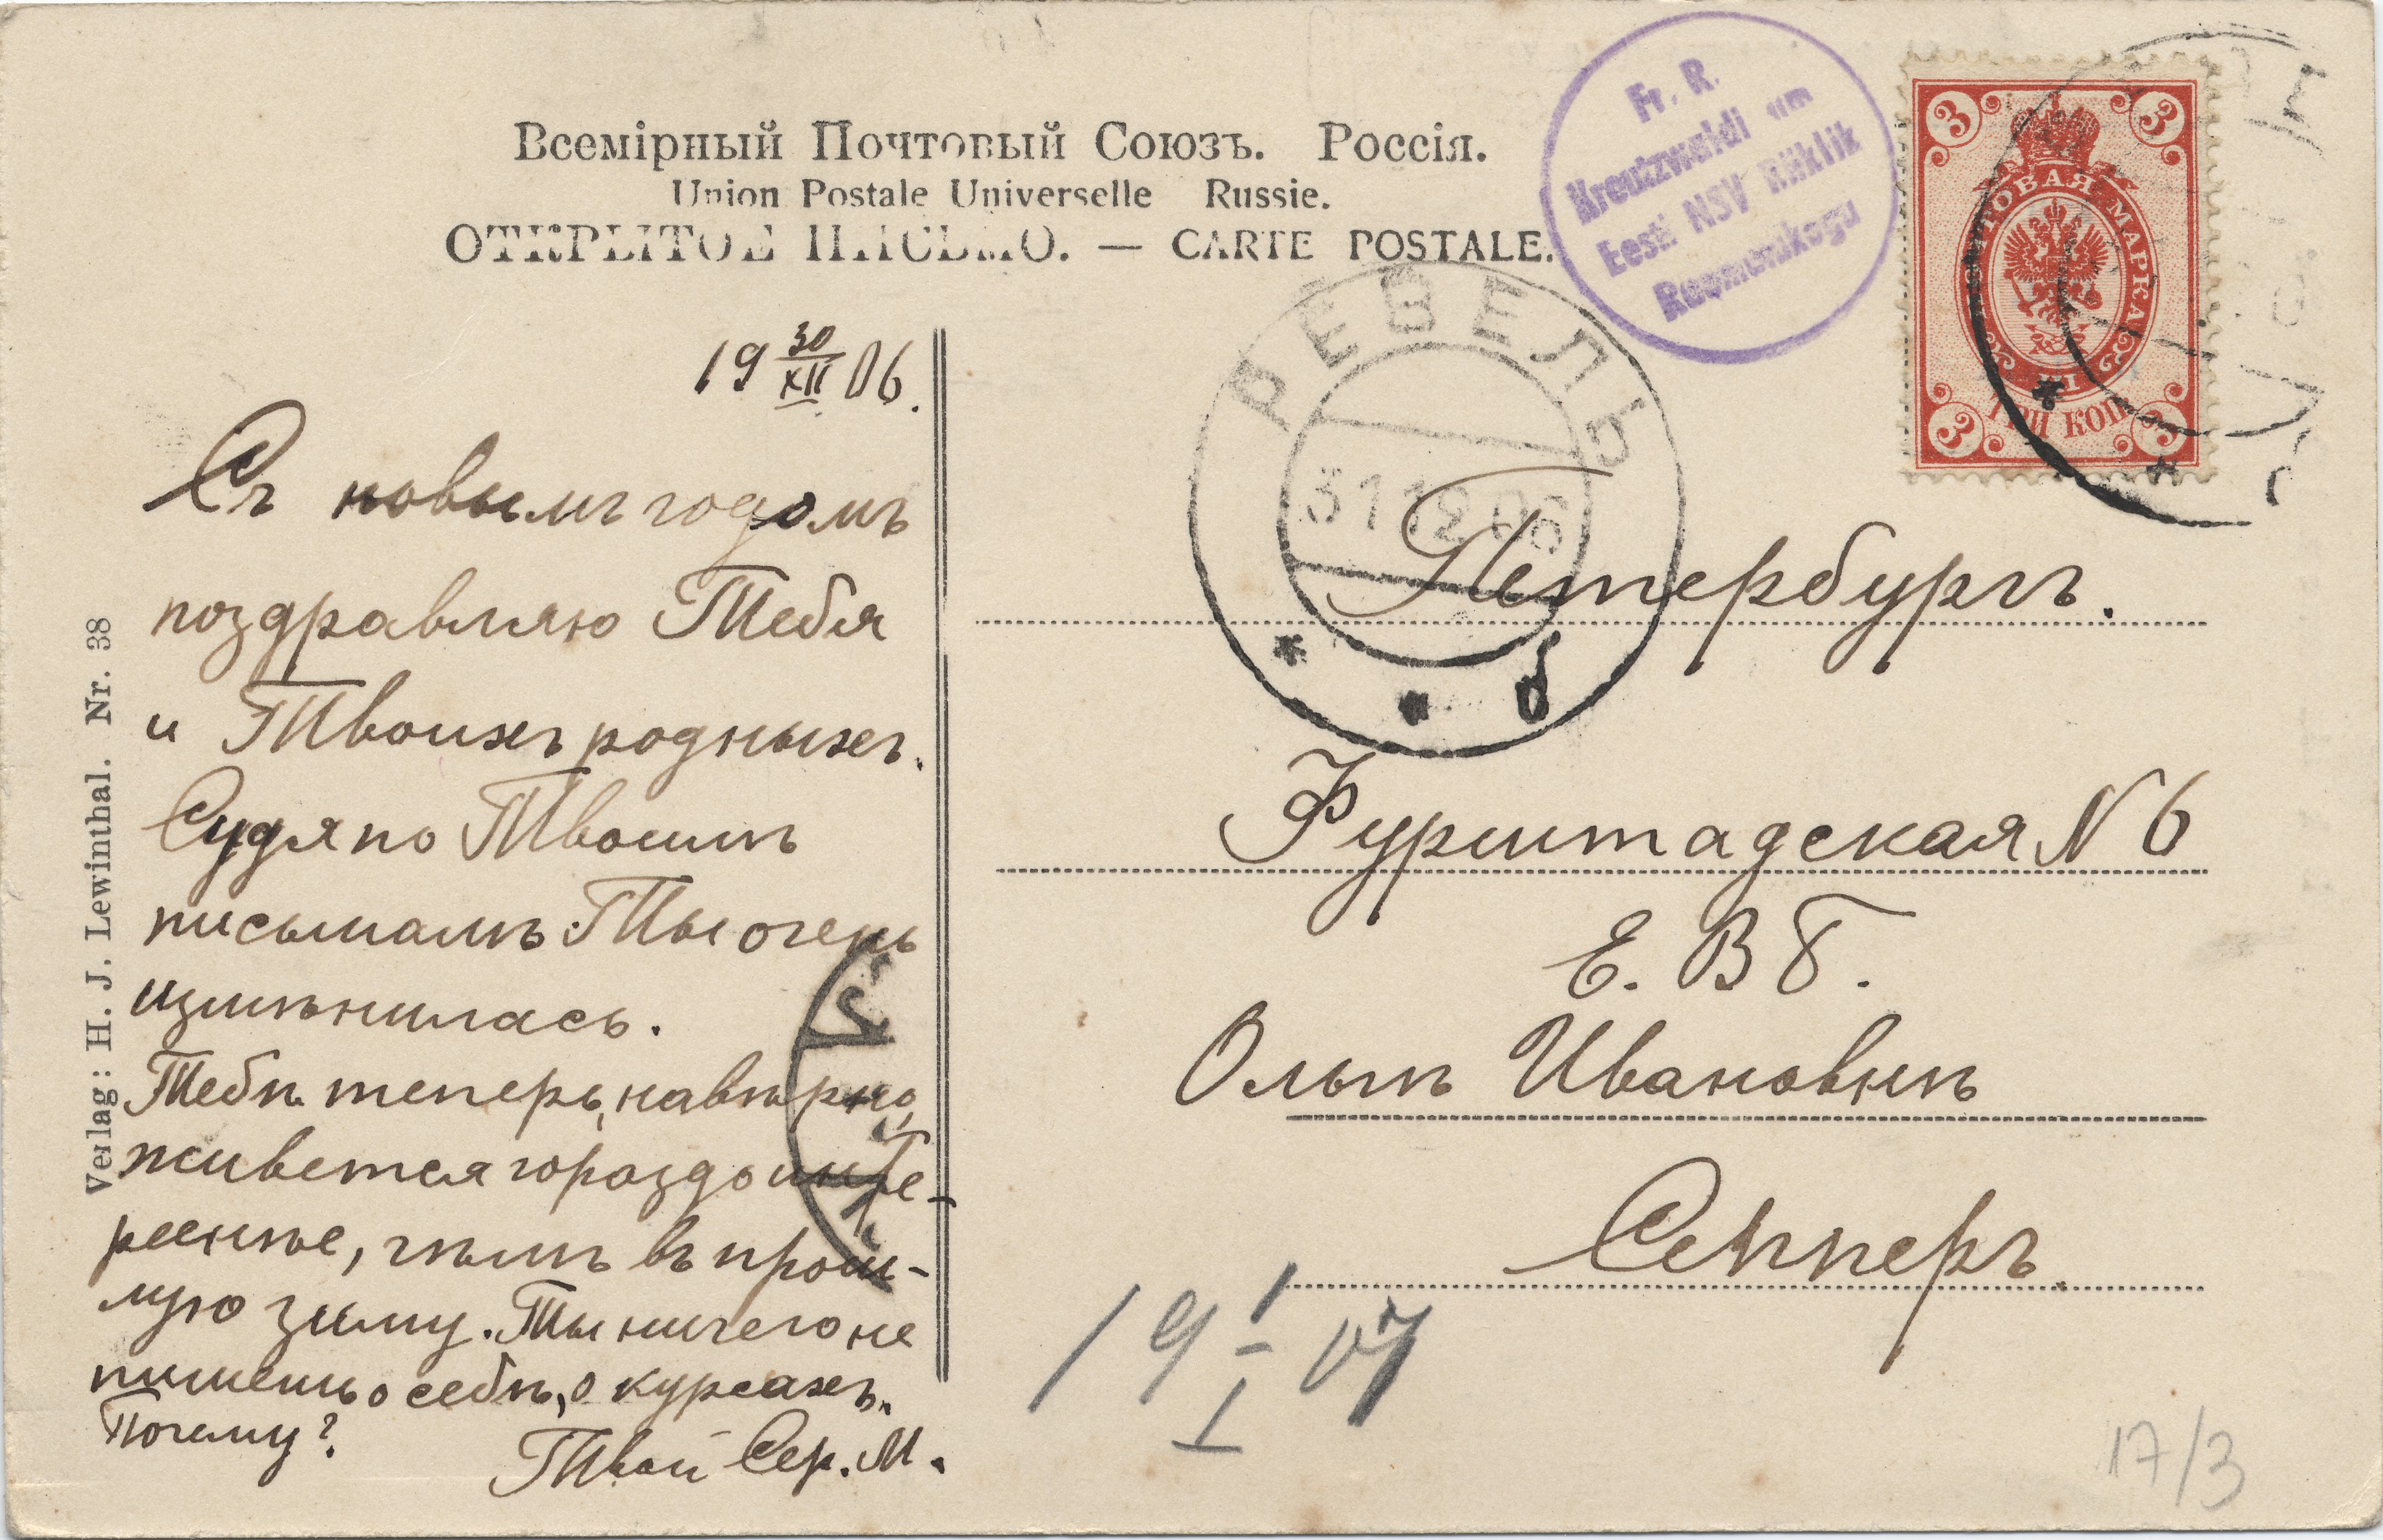 Всемірный Почтовый Союзъ. Россія.
Union Postale Universelle Russie.
ОТКРЫТОЕ ПИСЬМО. — CARTE POSTALE.
Fr. R.
Kreutzwaldi nim
Eesti NSV Riiklik
Raamatukogu
3 3
ПОЧТОВАЯ МАРКА
ТРИ КОП
3 3
РЕВЕЛЬ
31 12 06
б
19 30/XII 06.
Съ новымъ годомъ
поздравляю Тебя
и Твоихъ родныхъ.
Судя по Твоимъ
письмамъ Ты очень
измѣнилась.
Тебѣ теперь, навѣрно,
живется гораздо инте-
реснѣе, чѣмъ въ прош-
лую зиму. Ты ничего не
пишешь о себѣ, о курсахъ.
Почему?
Твой Сер. М.
Петербургъ.
Фурштадская N 6
Е. В Б.
Ольгѣ Ивановнѣ
Сепперъ.
19 1/I 07
17/3
Verlag: H. J. Lewinthal. Nr. 38